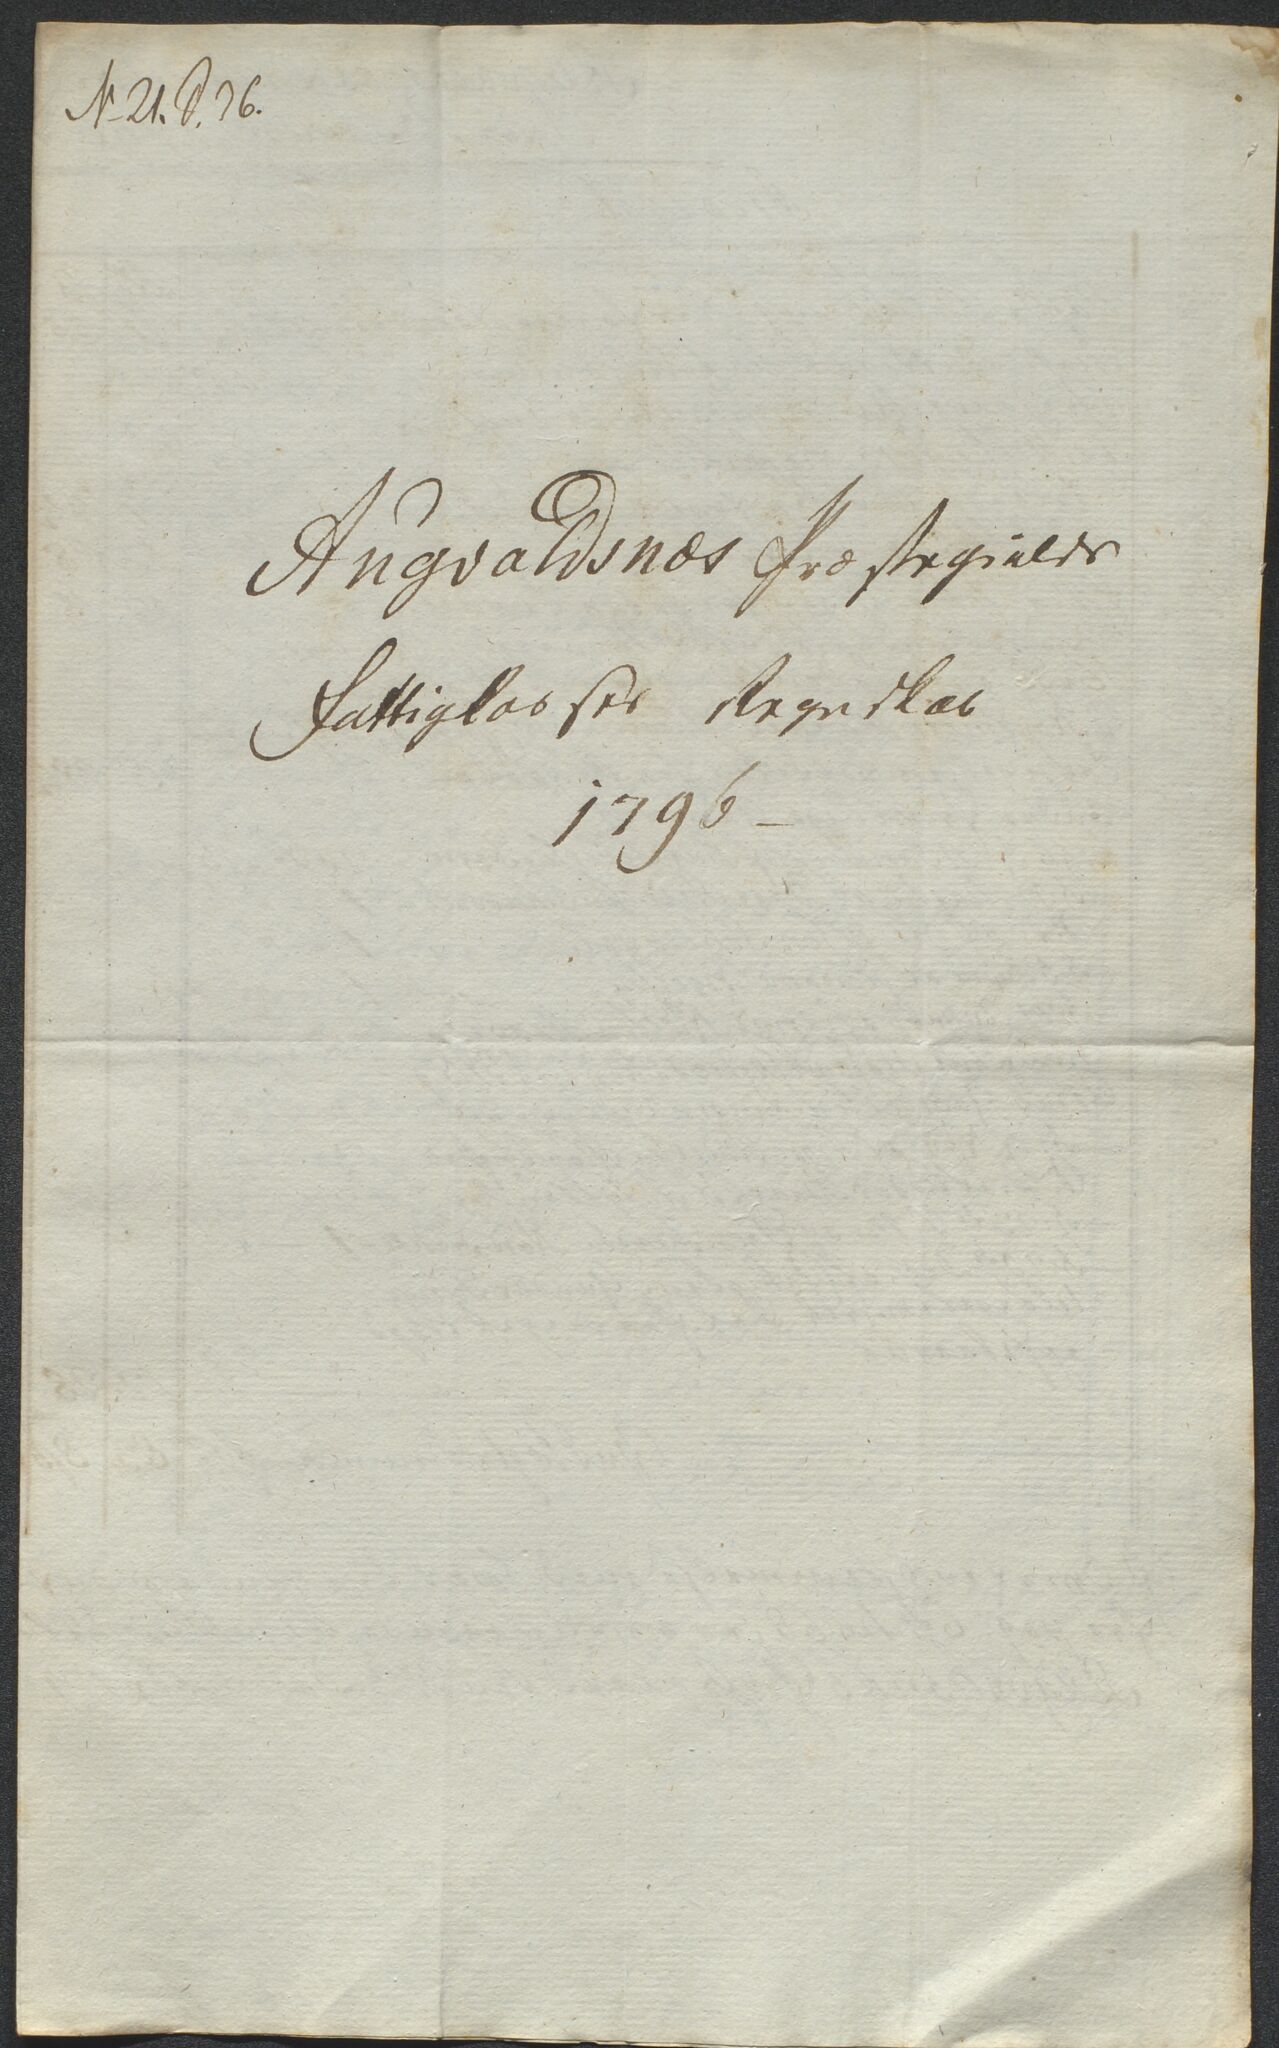 N 21. P. 76.
Augvaldsnæs Præstegields
Fattigkasses Regnskab
1796